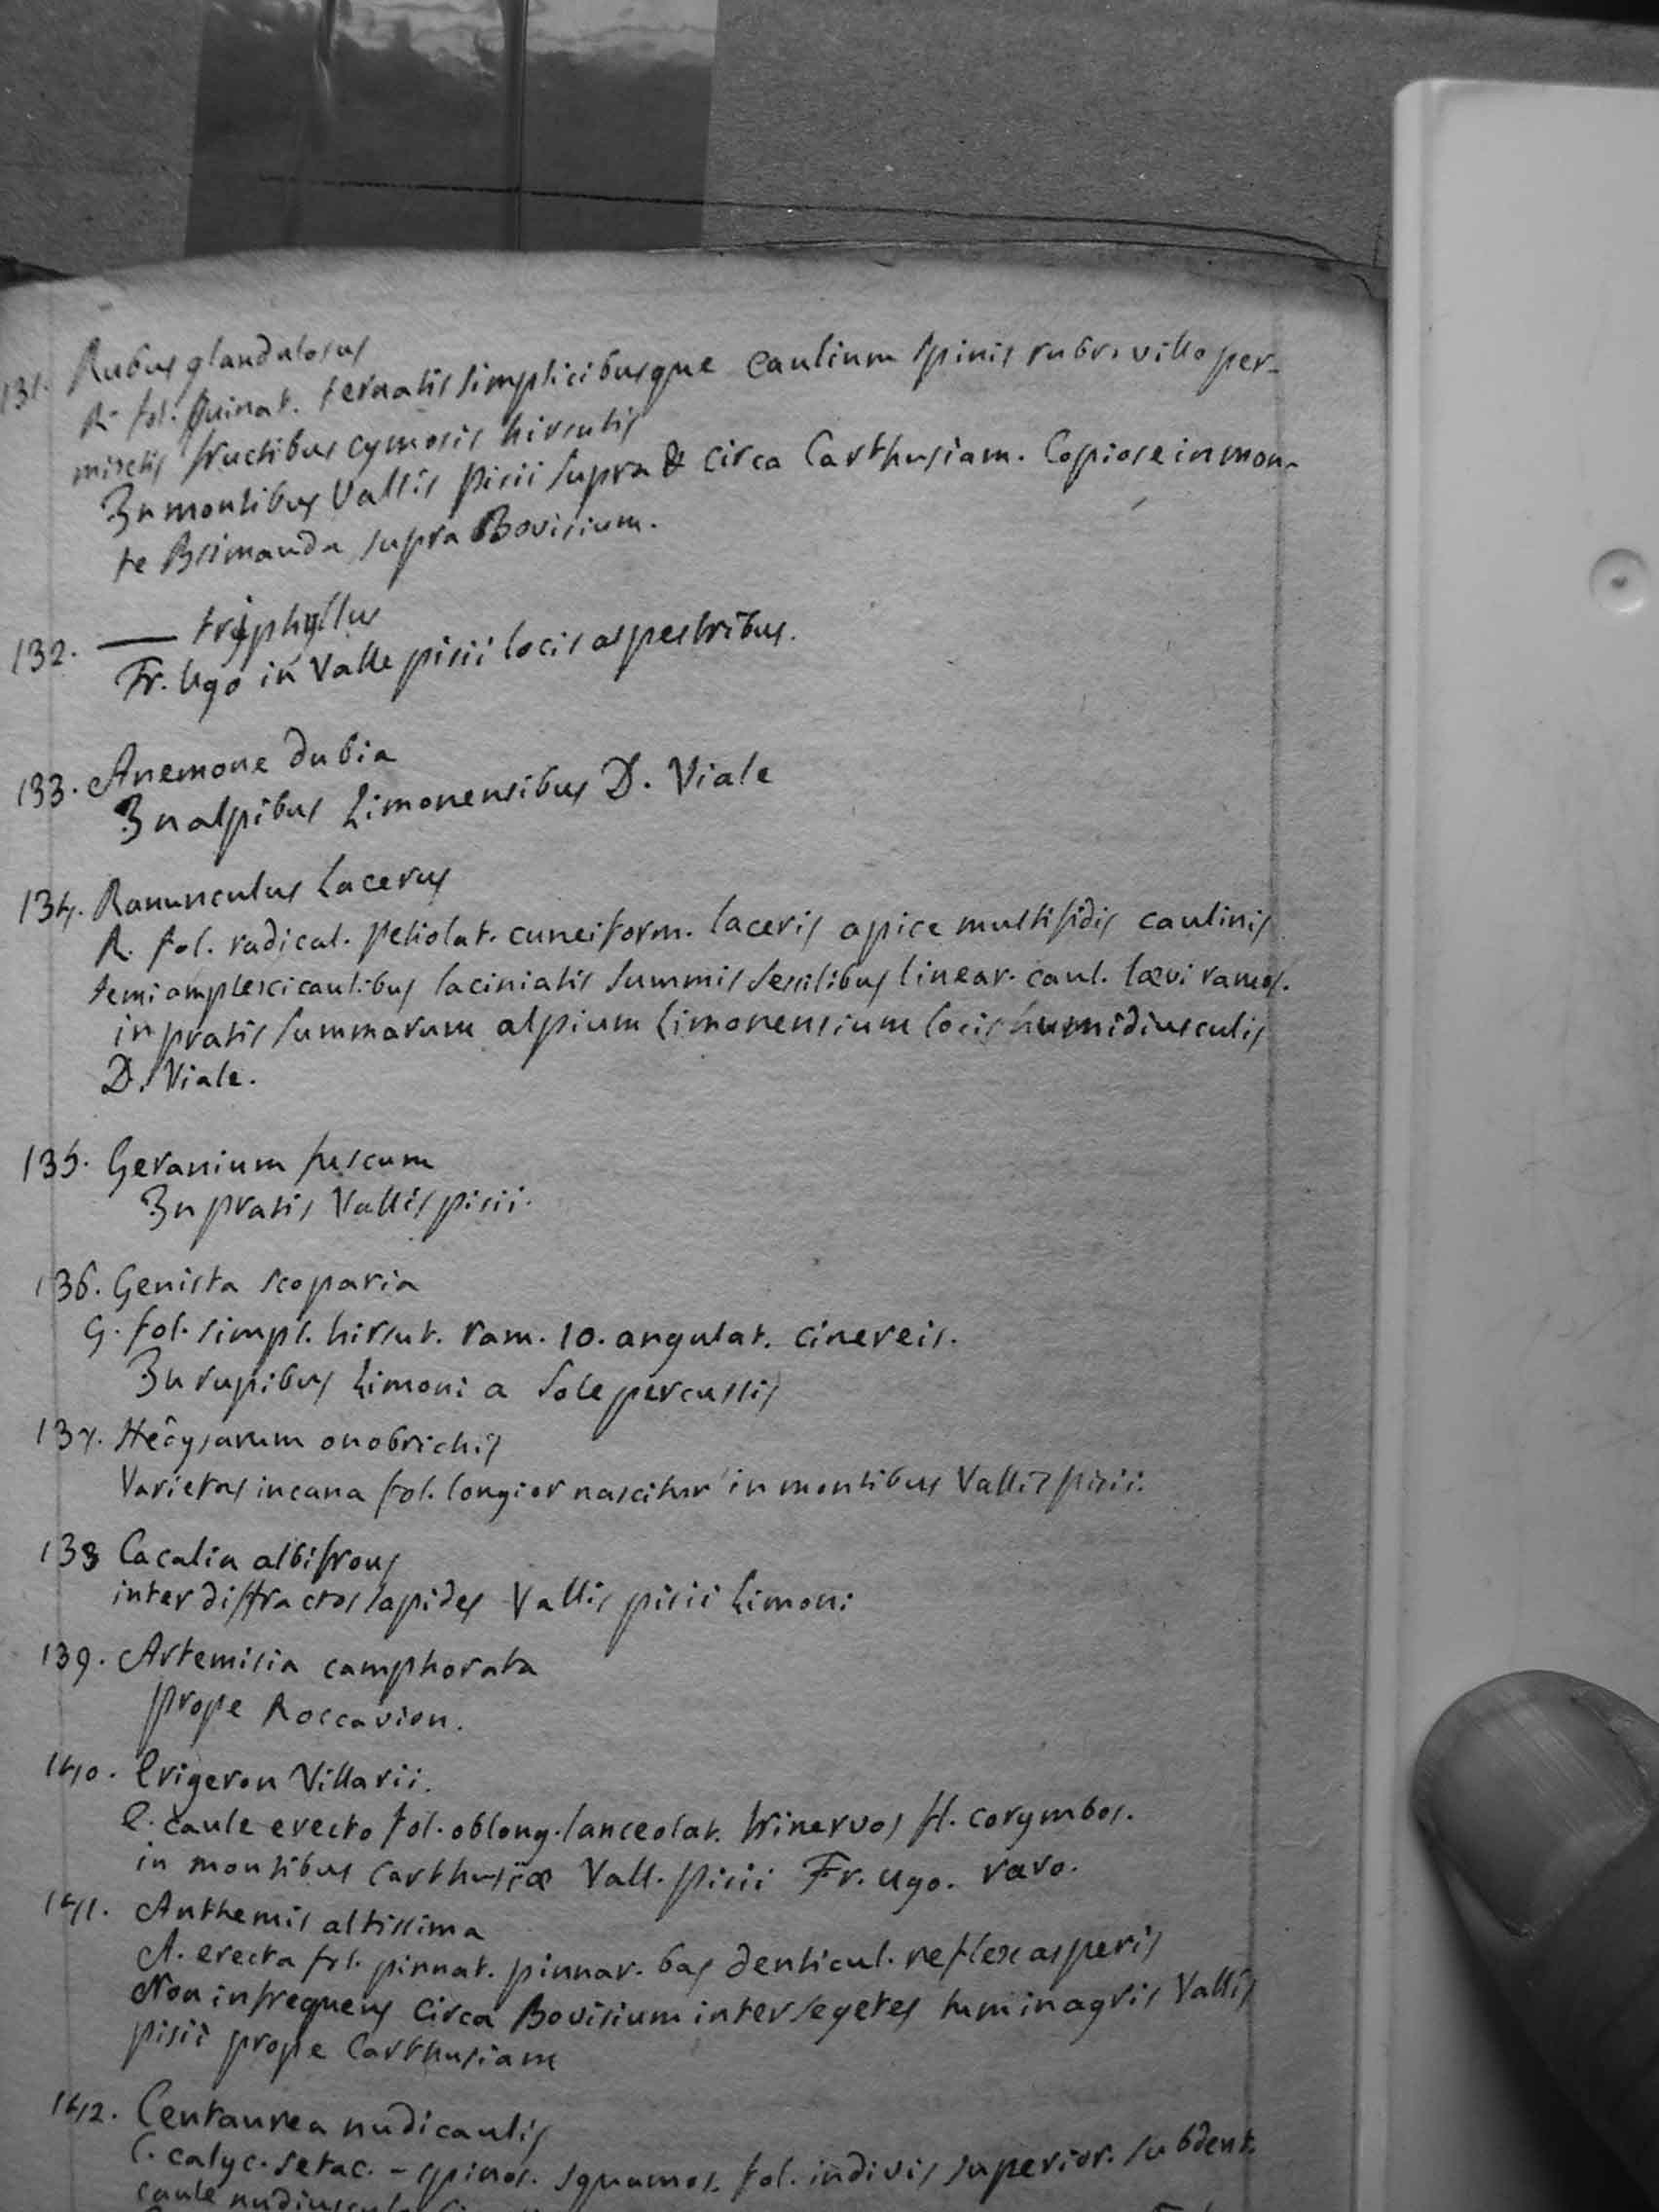 131. Rubus glandulosus
R. fol. quinat. ternatis simplicibusque caulium spinis rubro villo per-
mixtis fructibus cymosis hirsutis
In montibus Vallis pisii supra & circa Carthusiam. Copiose in mon-
te Brimauda supra Bovisium.
132. —— triphyllus
Fr. Ugo in Valle pisii locis aspestribus.
133. Anemone dubia
In alpibus Limonensibus D. Viale
134. Ranunculus Lacerus
R. fol. radical. petiolat. cuneiform. laceris apice multifidis caulinis
semiamplexicaulibus laciniatis summis sessilibus linear. caul. lævi ramos.
in pratis summarum alpium Limonensium locis humidiusculis
D. Viale.
135. Geranium fuscum
In pratis Vallis pisii.
136. Genista scoparia
G. fol. simpl. hirsut. ram. 10. angulat. cinereis.
In rupibus Limoni a Sole percussis
137. Hedysarum onobrichis
Varietas incana fol. longior nascitur in montibus Vallis pisii.
138 Cacalia albifrons
inter diffractos lapides Vallis pisii Limoni
139. Artemisia camphorata
prope Roccavion.
140. Erigeron Villarii.
E. caule erecto fol. oblong. lanceolat. trinervos fl. corymbos.
in montibus Carthusiæ Vall. pisii Fr. Ugo. raro.
141. Anthemis altissima
A. erecta fol. pinnat. pinnar. bas denticul. reflex asperis
Non infrequens circa Bovisium inter segetes tum in agris Vallis
pisii prope Carthusiam
142. Centaurea nudicaulis
C. calyc. setac. - spinos. squamos. fol. indivis superior. subdent.
caule